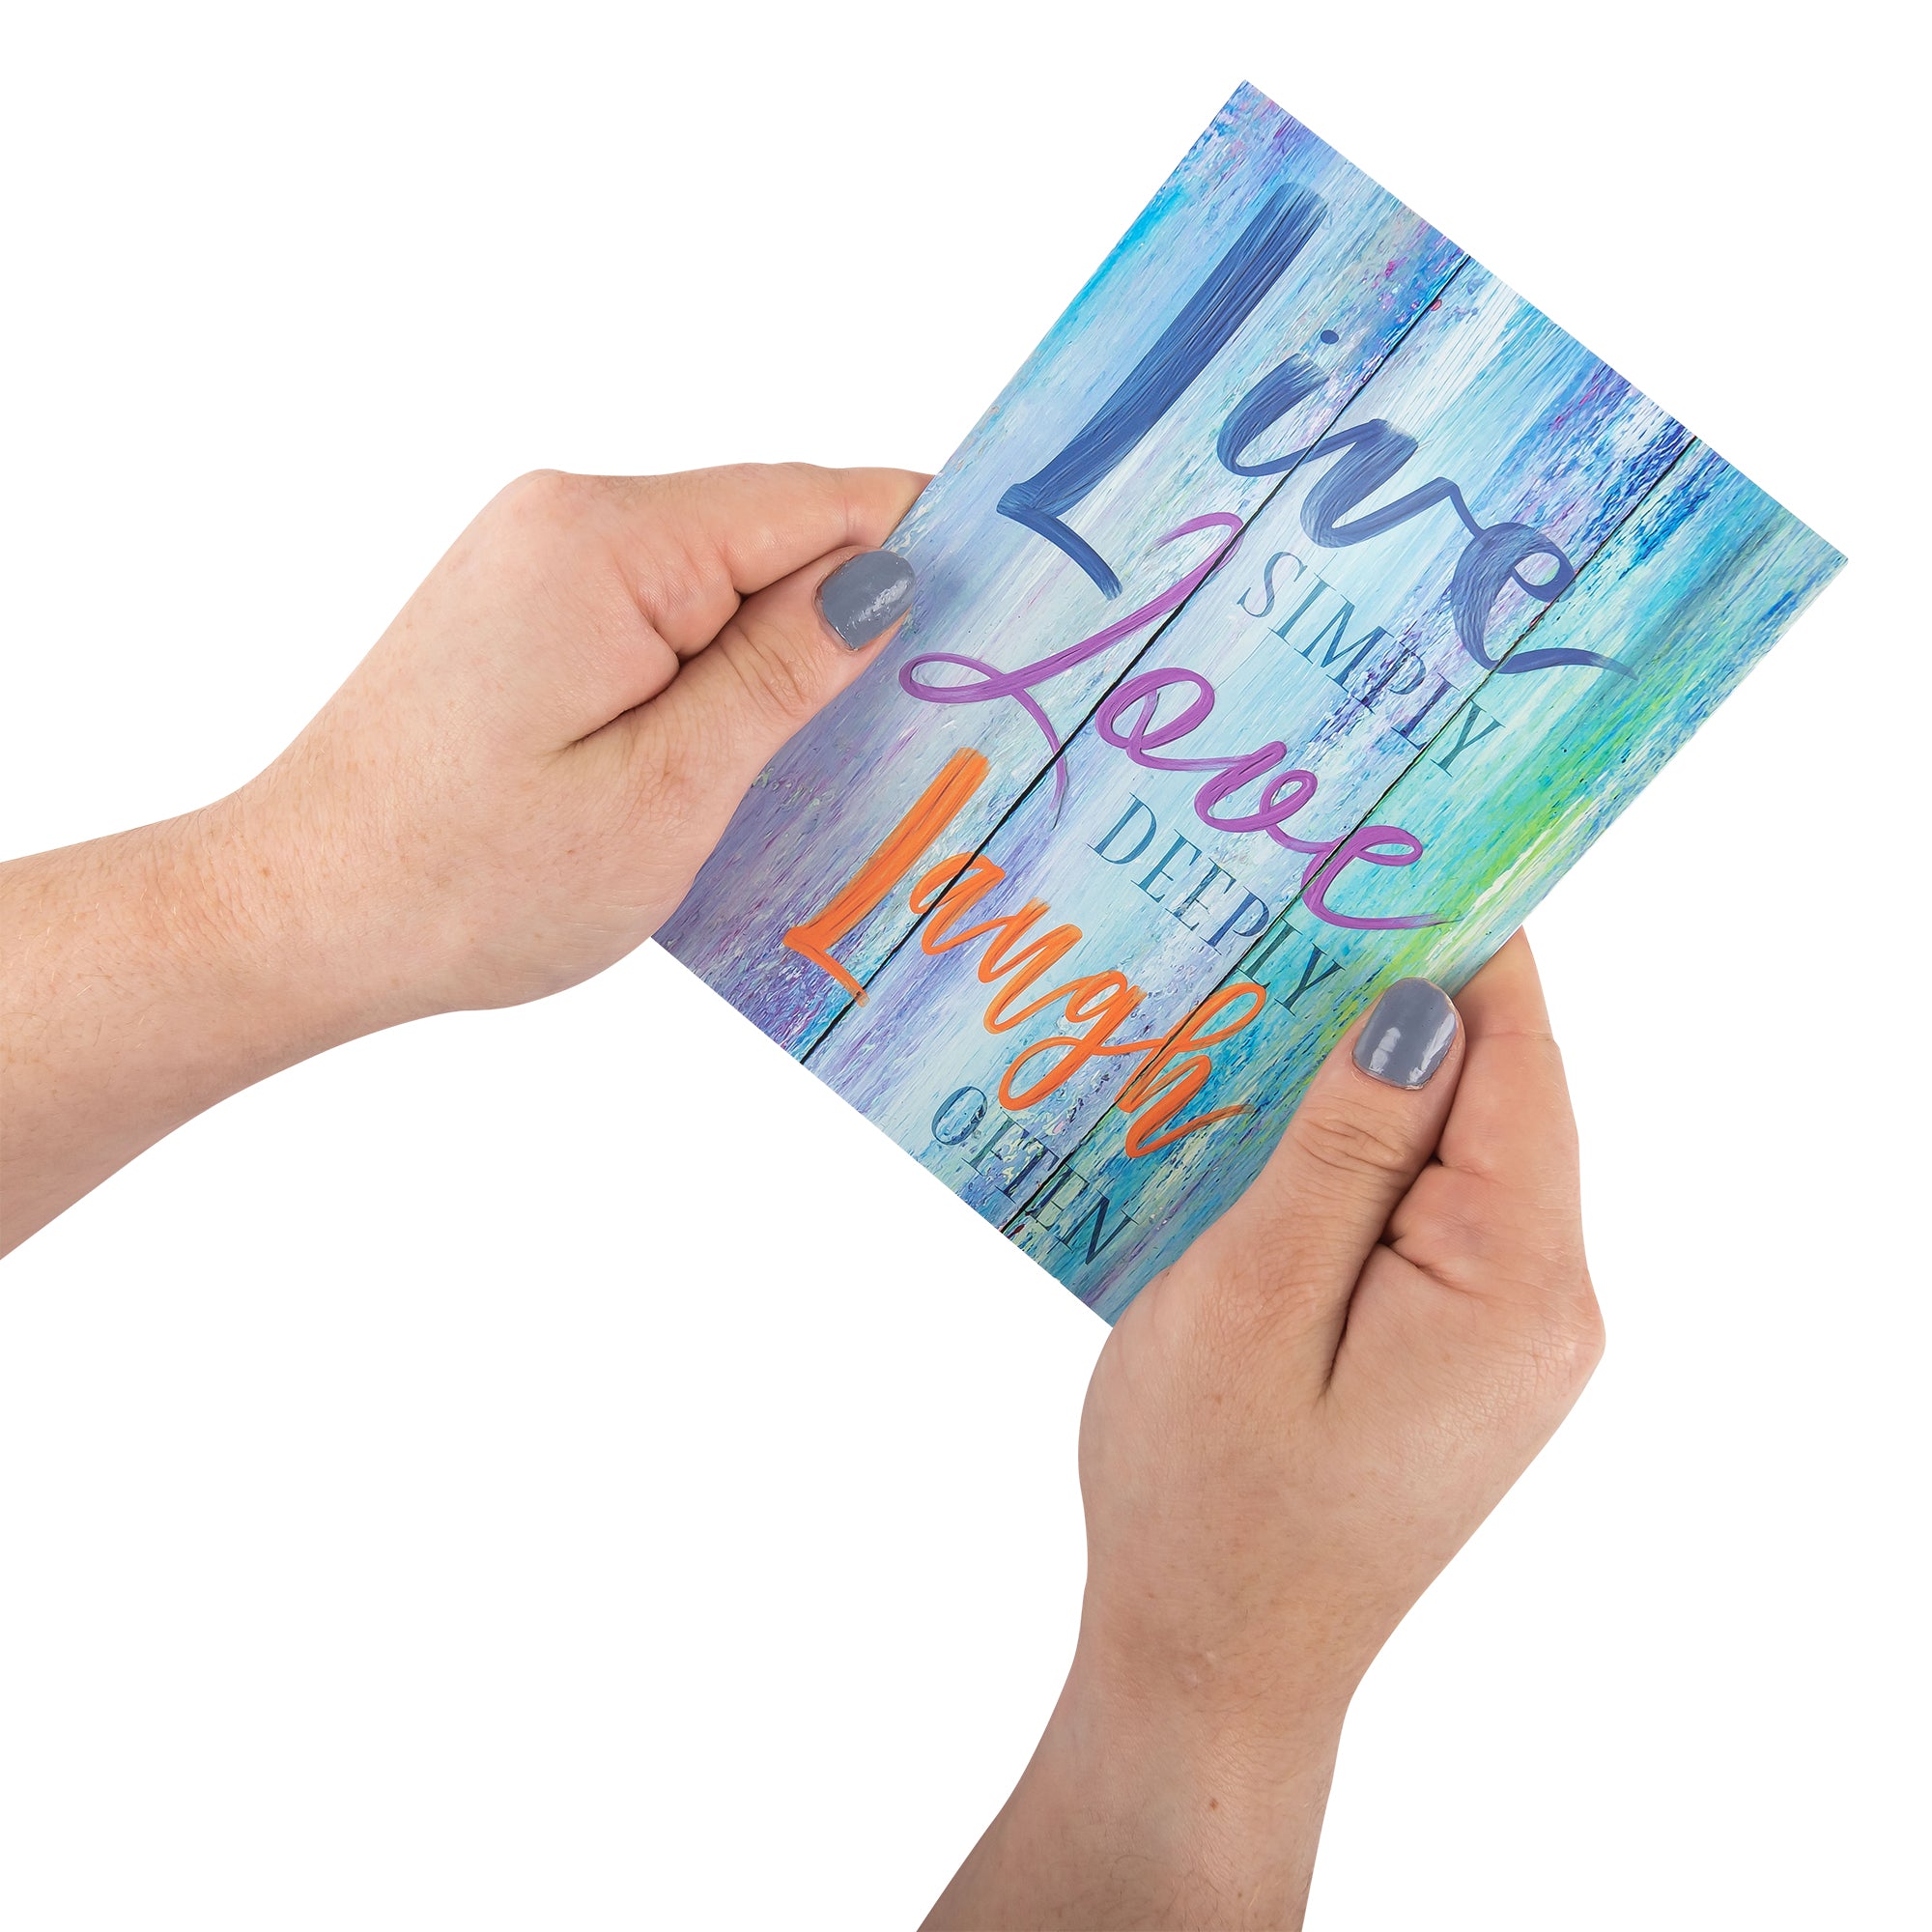 Live
SIMPLY
Love
DEEPLY
Laugh
OFTEN